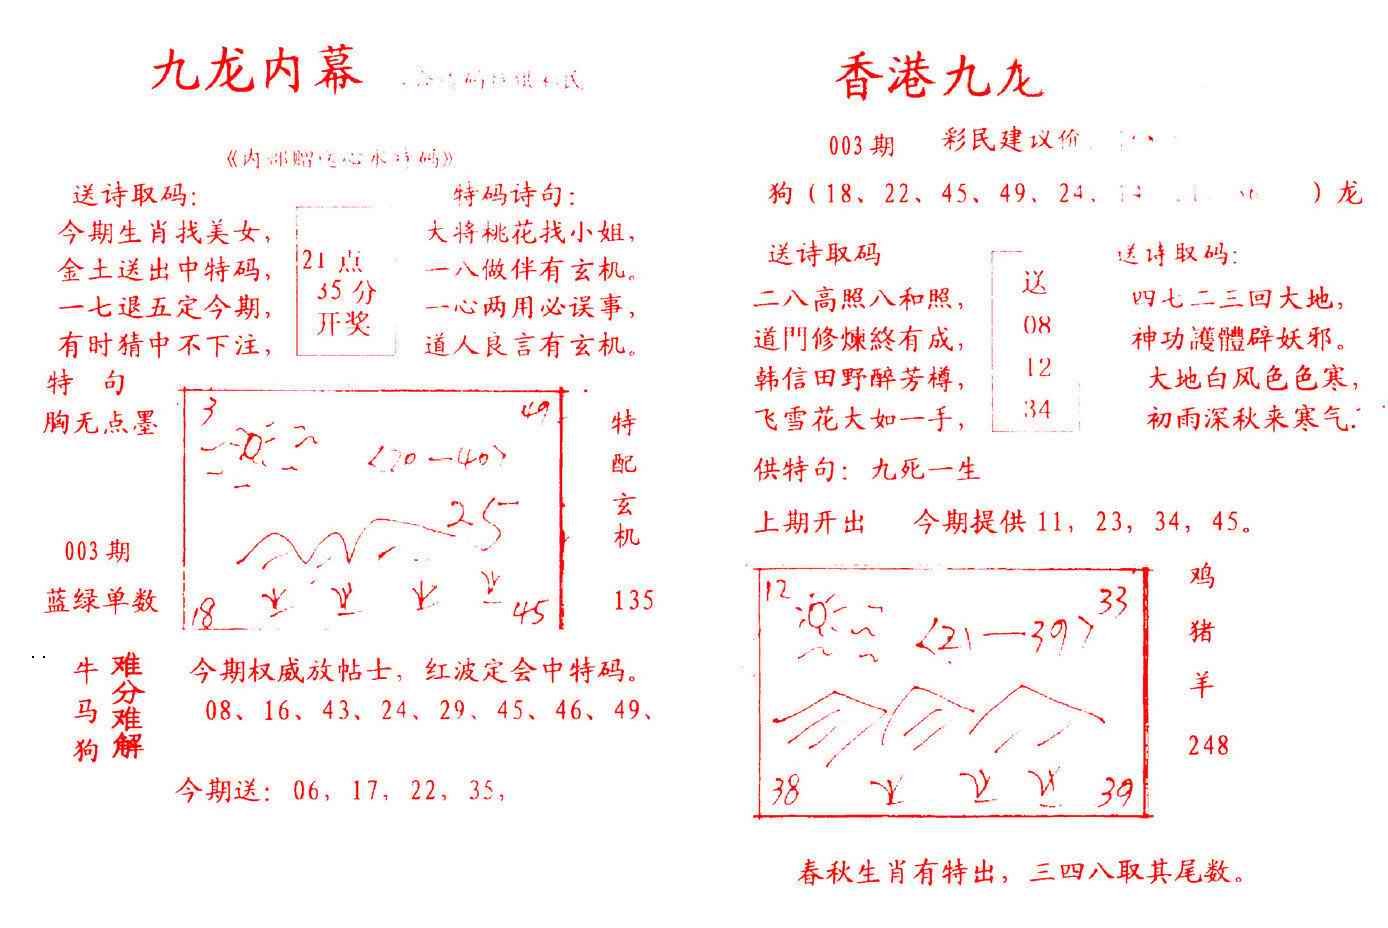 九龙内幕
送诗取码：
今期生肖找美女，
金土送出中特码，
一七退五定今期，
有时猜中不下注，
21点
35分
开奖
特码诗句：
大将桃花找小姐，
一八做伴有玄机。
一心两用必误事，
道人良言有玄机。
特 句
胸无点墨
003期
蓝绿单数
3
49
<20—40>
25
18
45
特
配
玄
机
135
牛
马
狗
难
分
难
解
今期权威放帖士，红波定会中特码。
08、16、43、24、29、45、46、49、
今期送：06，17，22，35，
香港九龙
003期 彩民建议价
狗（18、22、45、49、24、）龙
送诗取码
二八高照八和照，
道門修煉終有成，
韩信田野醉芳樽，
飞雪花大如一手，
送
08
12
34
送诗取码：
四七二三回大地，
神功護體辟妖邪。
大地白风色色寒，
初雨深秋来寒气．
供特句：九死一生
上期开出 今期提供11，23，34，45。
12
33
<21—39>
38
39
鸡
猪
羊
248
春秋生肖有特出，三四八取其尾数。